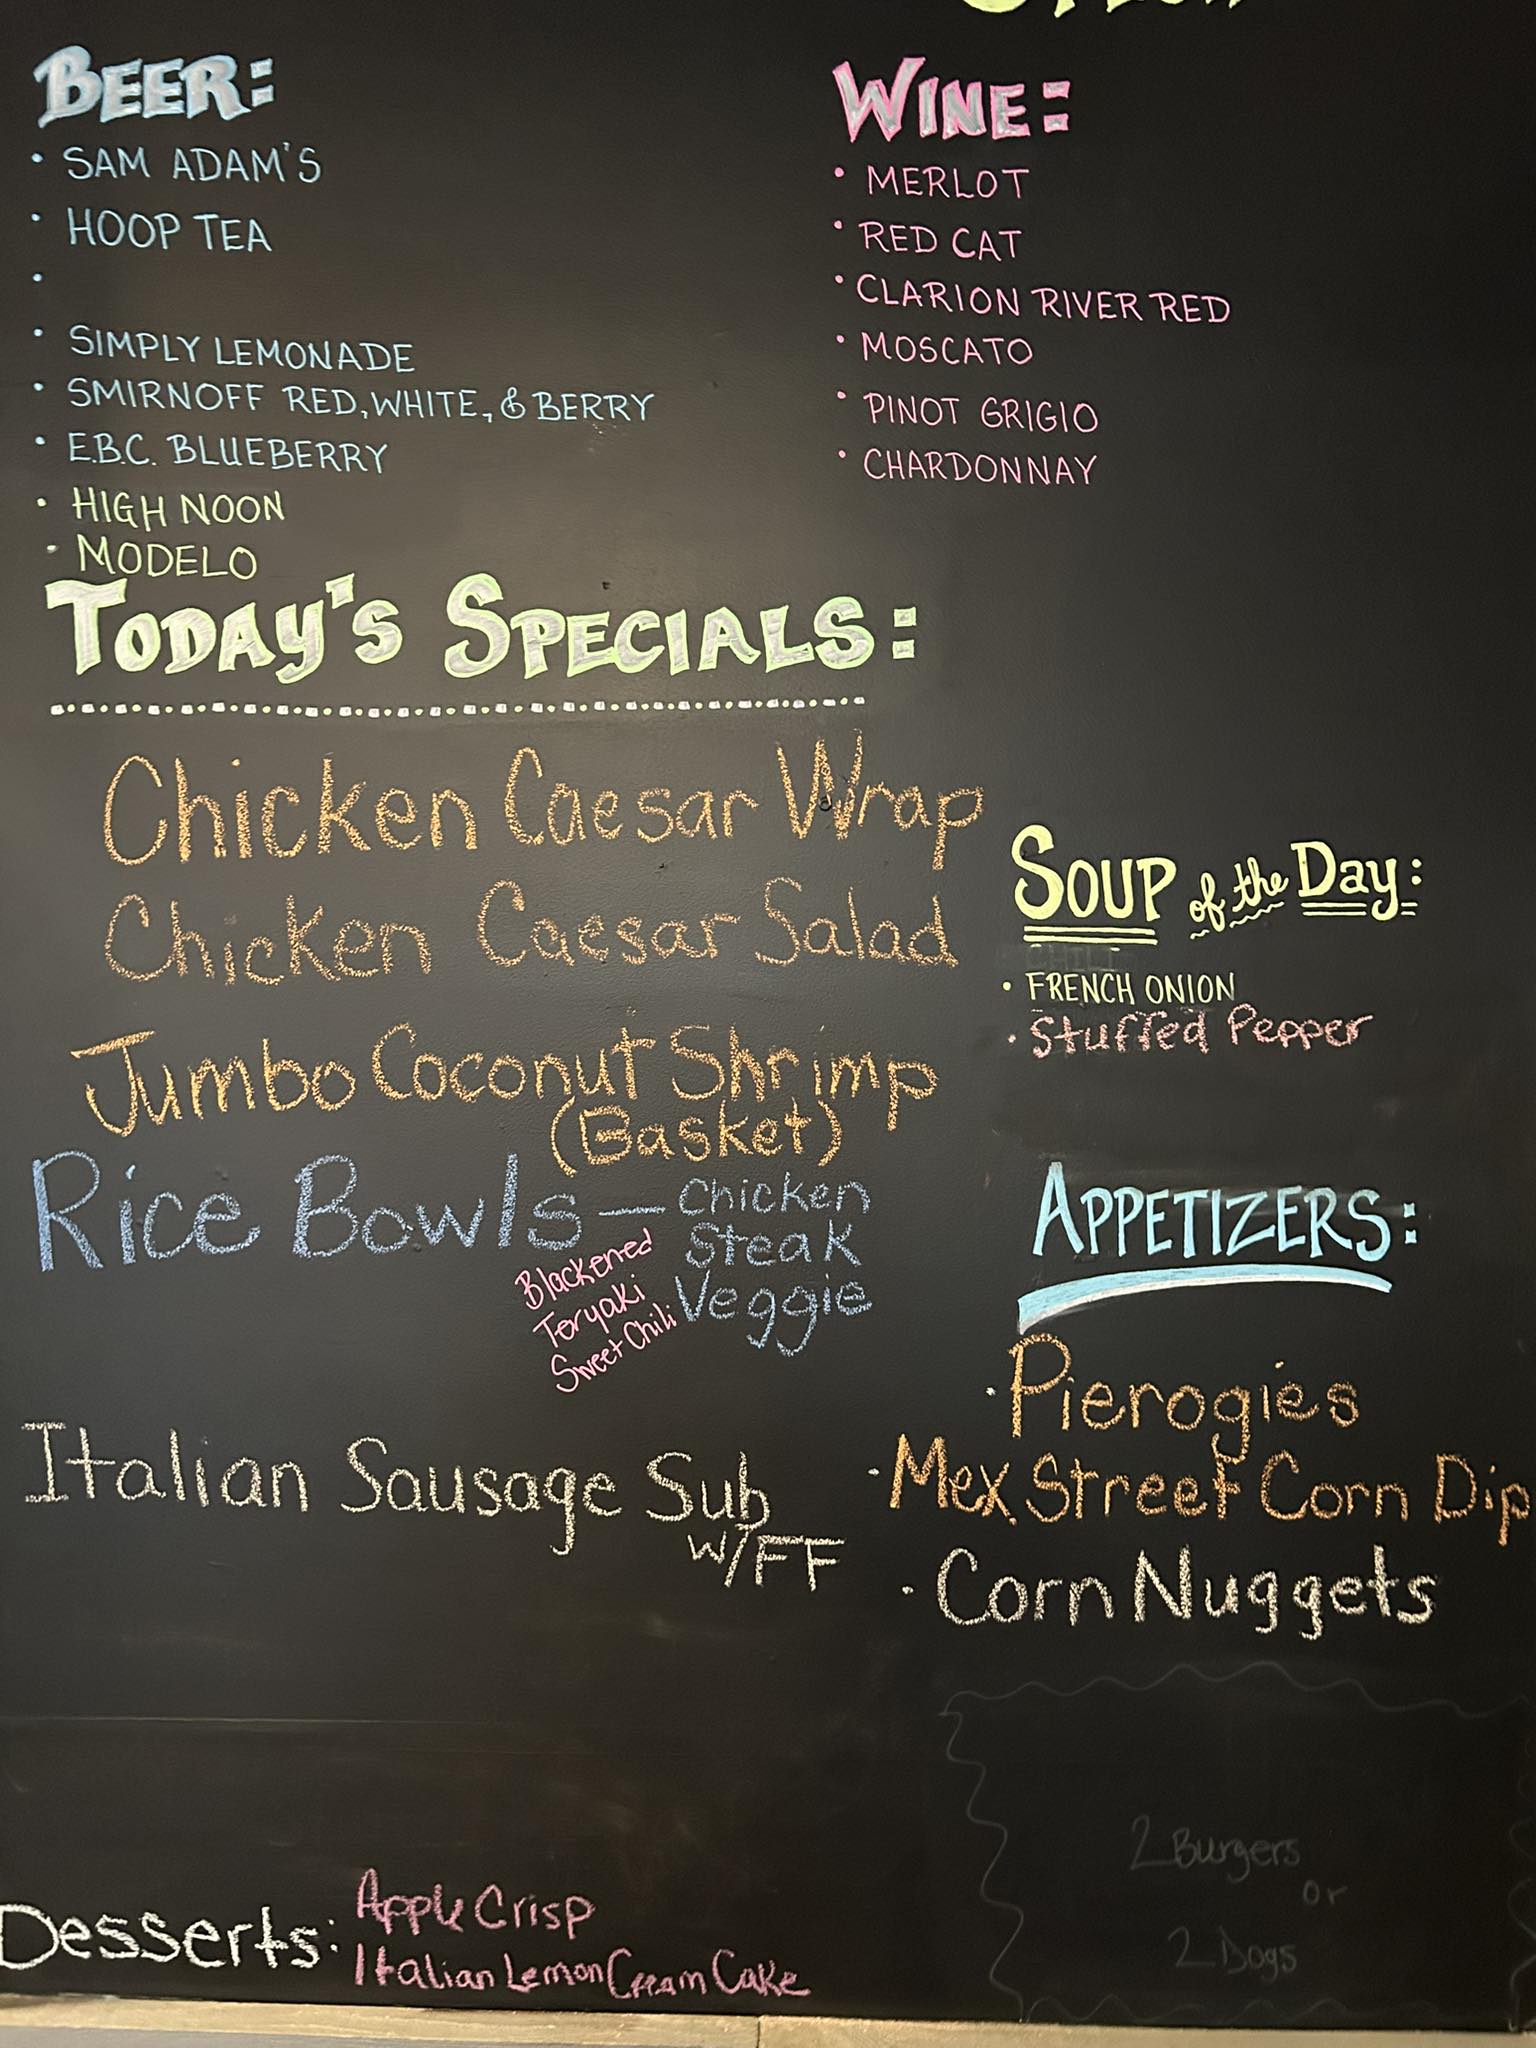 BEER:
• SAM ADAM'S
• HOOP TEA
•
• SIMPLY LEMONADE
• SMIRNOFF RED, WHITE, & BERRY
• E.B.C. BLUEBERRY
• HIGH NOON
• MODELO
WINE:
• MERLOT
• RED CAT
• CLARION RIVER RED
• MOSCATO
• PINOT GRIGIO
• CHARDONNAY
TODAY'S SPECIALS:
Chicken Caesar Wrap
Chicken Caesar Salad
Jumbo Coconut Shrimp
(Basket)
Rice Bowls — Chicken
Steak
Veggie
Blackened
Teryaki
Sweet Chili
Italian Sausage Sub
W/FF
SOUP of the Day:
CHILI
• FRENCH ONION
• Stuffed Pepper
APPETIZERS:
• Pierogies
• Mex. Street Corn Dip
• Corn Nuggets
2 Burgers
or
2 Dogs
Desserts: Apple Crisp
Italian Lemon Cream Cake